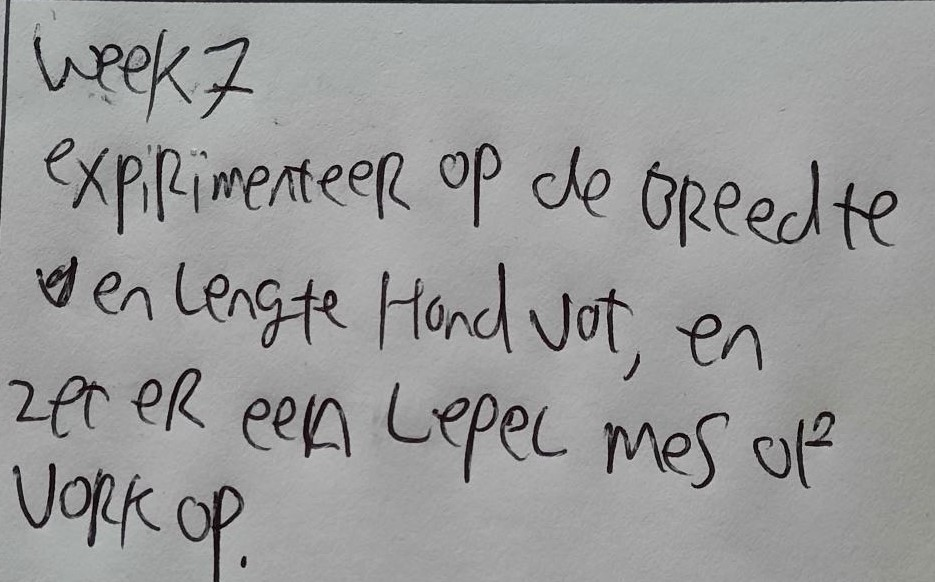 Week 7
expirimenteer op de Breedte
en Lengte Hand vat, en
zet er een Lepel mes of
Vork op.